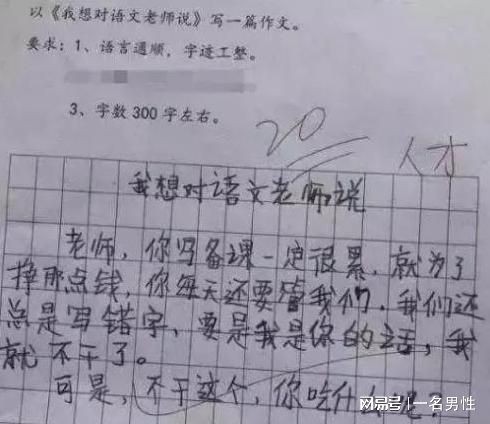 以《我想对语文老师说》写一篇作文。
要求：1、语言通顺，字迹工整。
3、字数300字左右。
20
人才
我想对语文老师说
老师，你写备课一定很累，就为了
挣那点钱，你每天还要管我们，我们还
总是写错字，要是我是你的话，我
就不干了。
可是，不干这个，你吃什么呢？
网易号|一名男性